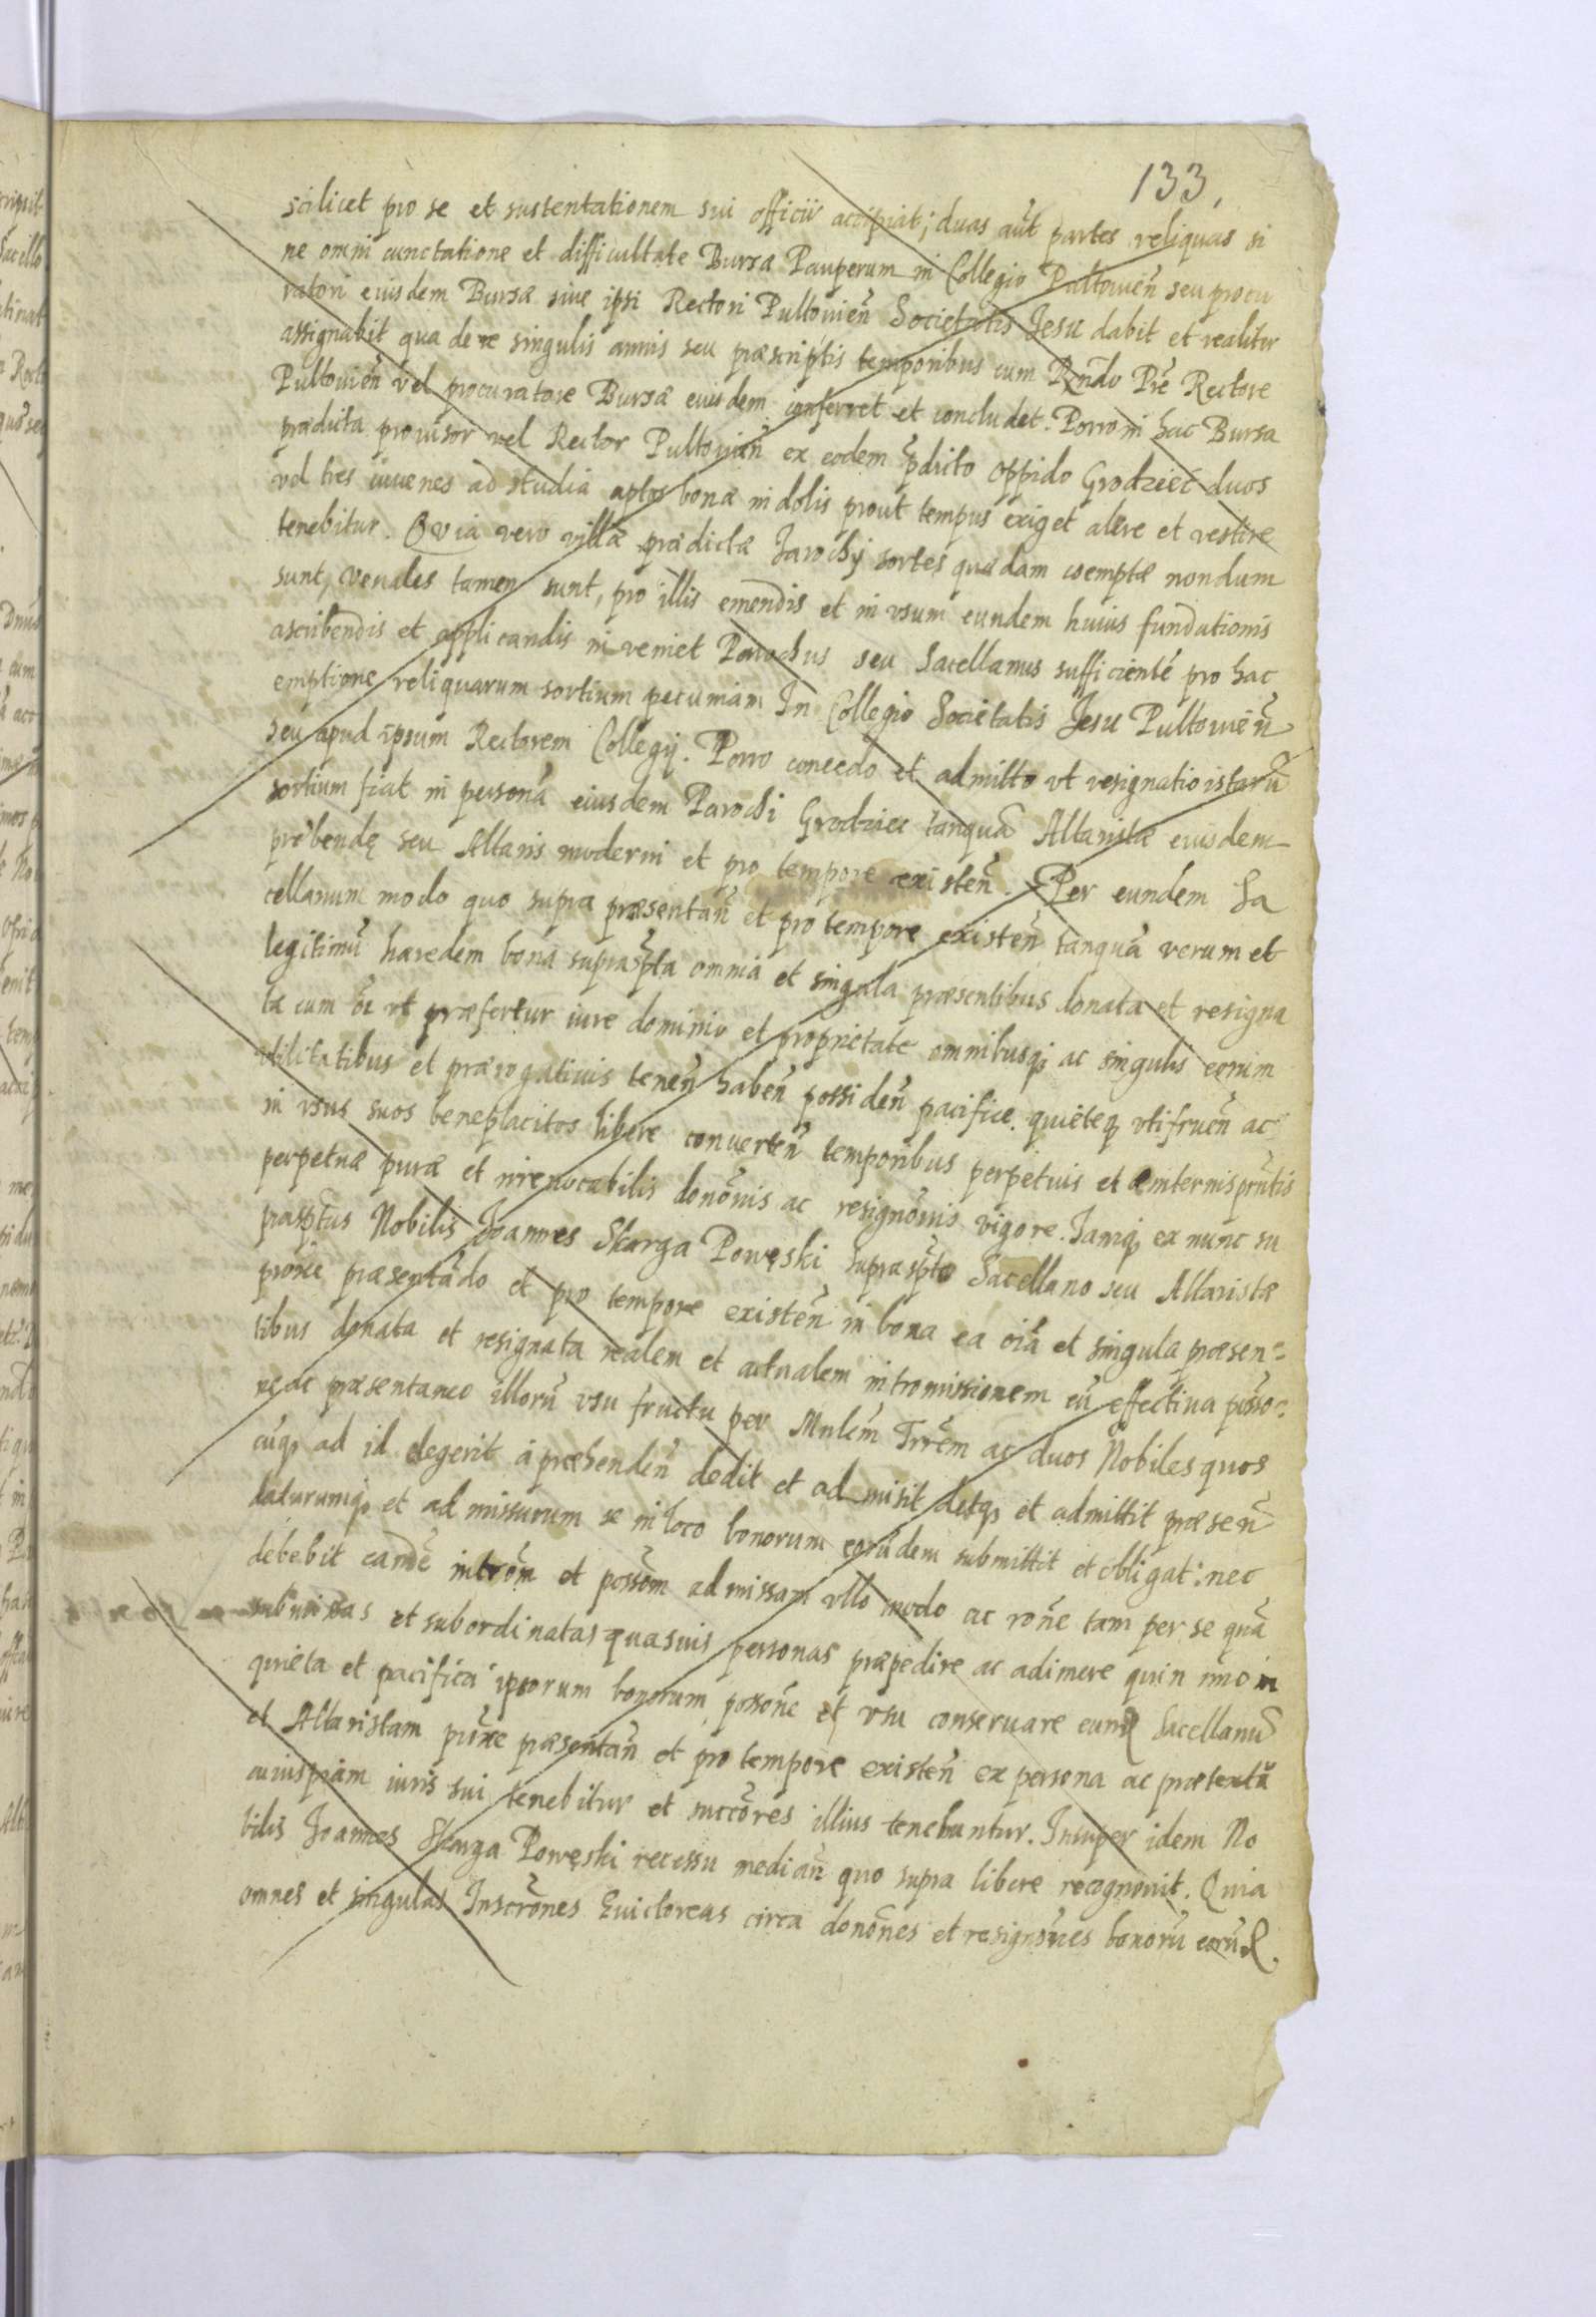 133.
scilicet pro se et sustentationem sui officii accipiat; duas aūt partes reliquas si
ne omni cunctatione et difficultate Bursæ Pauperum in Collegio Pultouien̄ seu procu
ratori eiusdem Bursæ siue ipsi Rectori Pultouien̄ Societatis Jesu dabit et realiter
assignabit qua de re singulis annis seu præscriptis temporibus cum Rn̄do Prē Rectore
Pultouien̄ vel procuratore Bursæ eiusdem conferret et concludet. Porro in hac Bursa
prædicta prouisor vel Rector Pultouien̄ ex eodem p̄dicto oppido Grodziec duos
vel tres iuuenes ad studia aptos bonæ indolis prout tempus exiget alere et vestire
tenebitur. Quia vero villæ prædictæ Jarochy sortes quædam coemptæ nondum
sunt, venales tamen sunt, pro illis emendis et in vsum eundem huius fundationis
ascribendis et applicandis inveniet Parochus seu Sacellanus sufficientē pro hac
emptione reliquarum sortium pecuniam In Collegio Societatis Jesu Pultouien̄
seu apud ipsum Rectorem Collegij. Porro concedo et admitto vt resignatio istarū
sortium fiat in personā eiusdem Parochi Grodziec tanquā Altaristæ eiusdem
præbendę seu Altaris moderni et pro tempore existen̄. Per eundem Sa
cellanum modo quo supra præsentan̄ et pro tempore existen̄ tanquā verum et
legitimū hæredem bona suprasp̄ta omnia et singula præsentibus donata et resigna
ta cum oī vt præfertur iure dominio et proprietate omnibusq; ac singulis eorum
vtilitatibus et prærogatiuis tenen̄ haben̄ possiden̄ pacifice quieteq; vtifruen̄ ac
in vsus suos beneplacitos libere conuerten̄ temporibus perpetuis et æuiternis prn̄tis
perpetuæ puræ et irreuocabilis donōnis ac resignōnis vigore. Jamq; ex nunc su
prasp̄tus Nobilis Joannes Skarga Powęski suprasp̄to Sacellano seu Altaristæ
præsentādo et pro tempore existen̄ in bona ea oīa et singula præsen=
tibus donata et resignata realem et actualem intromissionem cū effectiua
præsentaneo illorū vsu fructu per Mnlem̄ Trrēm ac duos Nobiles quos
cūq; ad id elegerit apræhenden̄ dedit et admisit datq; et admittit præsen̄
daturumq; et admissurum se in loco bonorum eorūdem submittit et obligat: nec
debebit eandē intrōm et possōm admissam vllo modo ac rōne tam per se quā
et subordinatas quasuis personas præpedire ac adimere quin imo in
quieta et pacifica ipsorum bonorum possōne et vsu conseruare eund Sacellanū
et Altaristam præsentan̄ et pro tempore existen̄ ex persona ac prætextu
cuiuspiam iuris sui tenebitur et succōres illius tenebuntur. Insuper idem No
bilis Joannes Skarga Powęski recessu median̄ quo supra libere recognouit. Quia
omnes et singulas Inscrōnes Euictoreas circa donōnes et resignōnes bonorū eorūd.